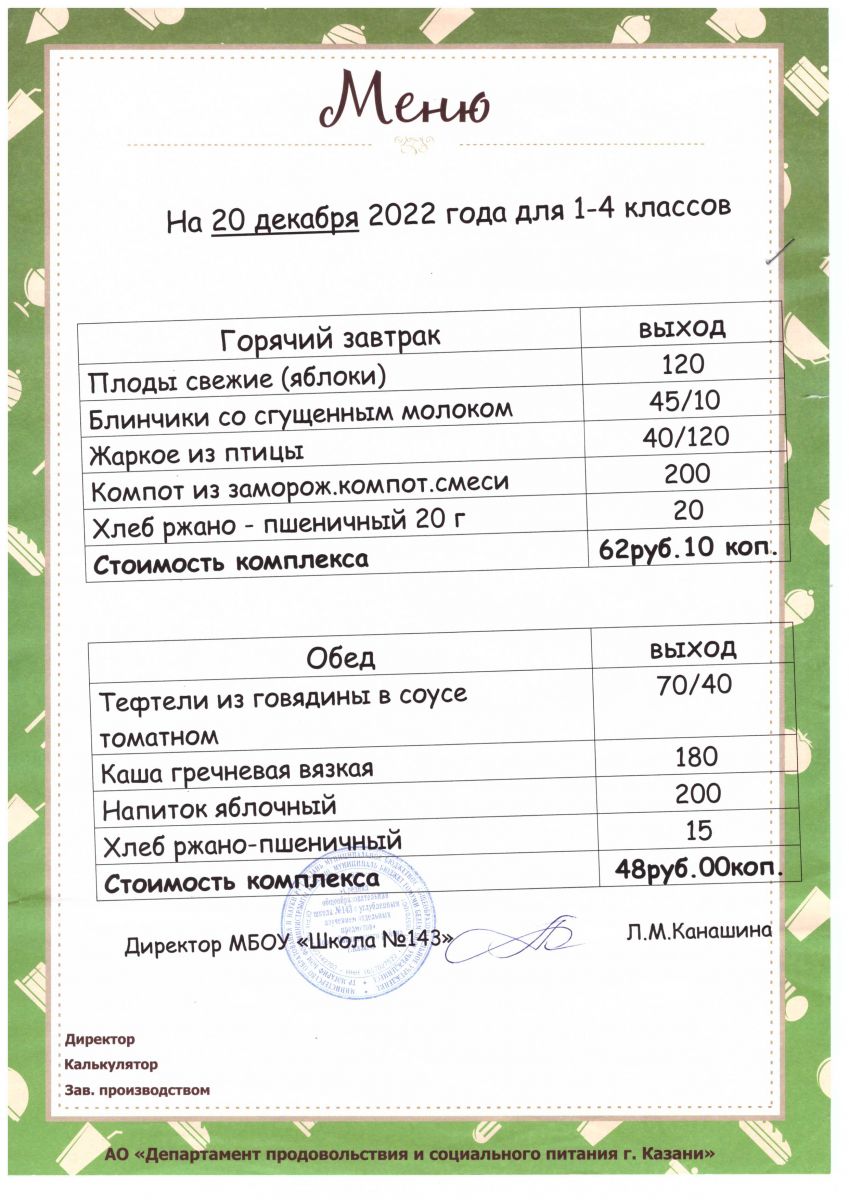 Меню
На 20 декабря 2022 года для 1-4 классов
Горячий завтрак выход
Плоды свежие (яблоки) 120
Блинчики со сгущенным молоком 45/10
Жаркое из птицы 40/120
Компот из заморож.компот.смеси 200
Хлеб ржано - пшеничный 20 г 20
Стоимость комплекса 62руб.10 коп.
Обед выход
Тефтели из говядины в соусе 70/40
томатном
Каша гречневая вязкая 180
Напиток яблочный 200
Хлеб ржано-пшеничный 15
Стоимость комплекса 48руб.00коп.
общеобразовательная
школа №143 с углубленным
изучением отдельных
предметов»
Директор МБОУ «Школа №143» Л.М.Канашина
Директор
Калькулятор
Зав. производством
АО «Департамент продовольствия и социального питания г. Казани»